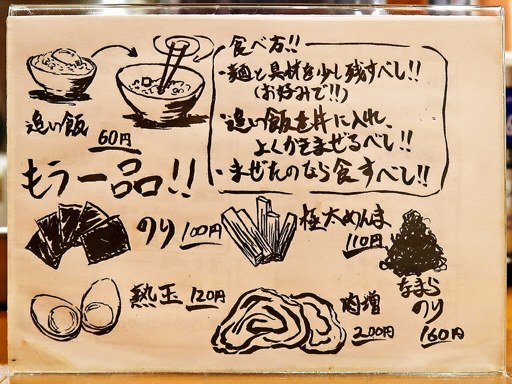 食べ方!!
・麺と具材を少し残すべし!!
(お好みで!!)
・追い飯を丼に入れ、
よくかきまぜるべし!!
・まぜたのなら食すべし!!
追い飯
60円
もう一品!!
のり 100円
極太めんま
110円
なまら
のり
160円
熟玉 120円
肉増
200円